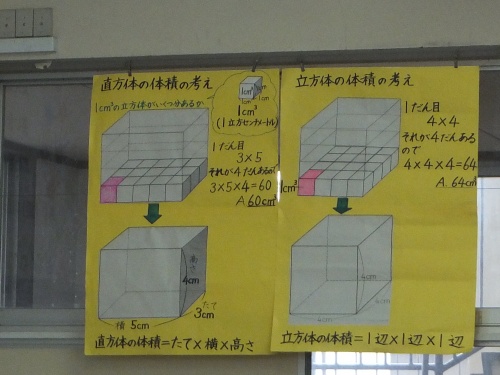 直方体の体積の考え
1cm³の立方体がいくつ分あるか
1cm³
1cm
1cm³
(1立方センチメートル)
1だん目
3×5
それが4だんあるので
3×5×4=60
A.60cm³
高さ
4cm
たて
3cm
横 5cm
直方体の体積=たて×横×高さ
立方体の体積の考え
1だん目
4×4
それが4だんある
ので
4×4×4=64
A.64cm³
1cm³
4cm
4cm
4cm
立方体の体積=1辺×1辺×1辺